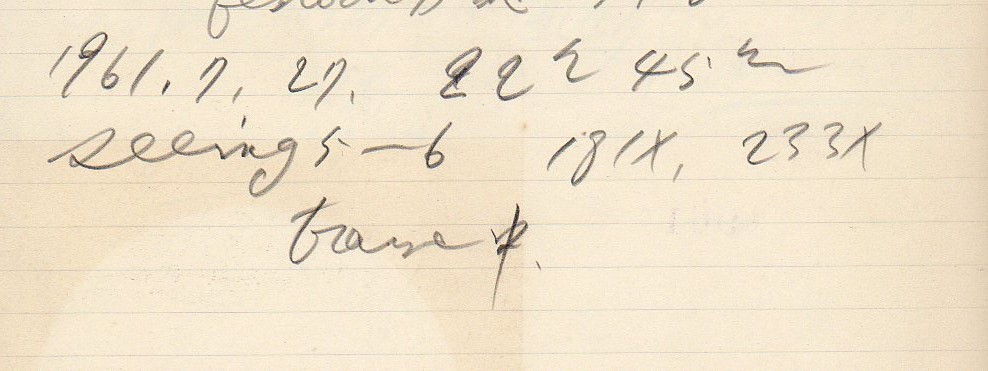 1961. 7. 27. 22h 45m
seeing 5-6 181X, 233X